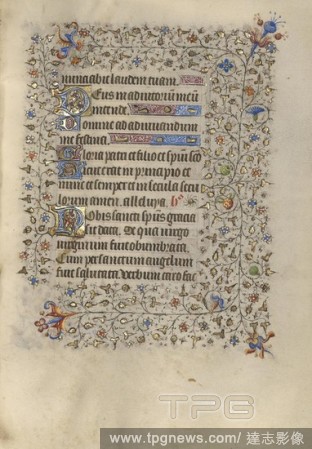 nuncabit laudem tuam.
Deus in adiutorium meū
intende.
Domine ad adiuuandum
me festina.
Gloria patri et filio et spūi scō
Sicut erat in principio et
nunc et semper et in secula secu
lorum amen. alleluya. 
Nobis sancti spūs gratia
sit data, de qua uirgo
uirginum fuit obumbrata,
Cum per sanctum angelum
fuit salutata, verbum caro fac
TPG
www.tpgnews.com/達志影像